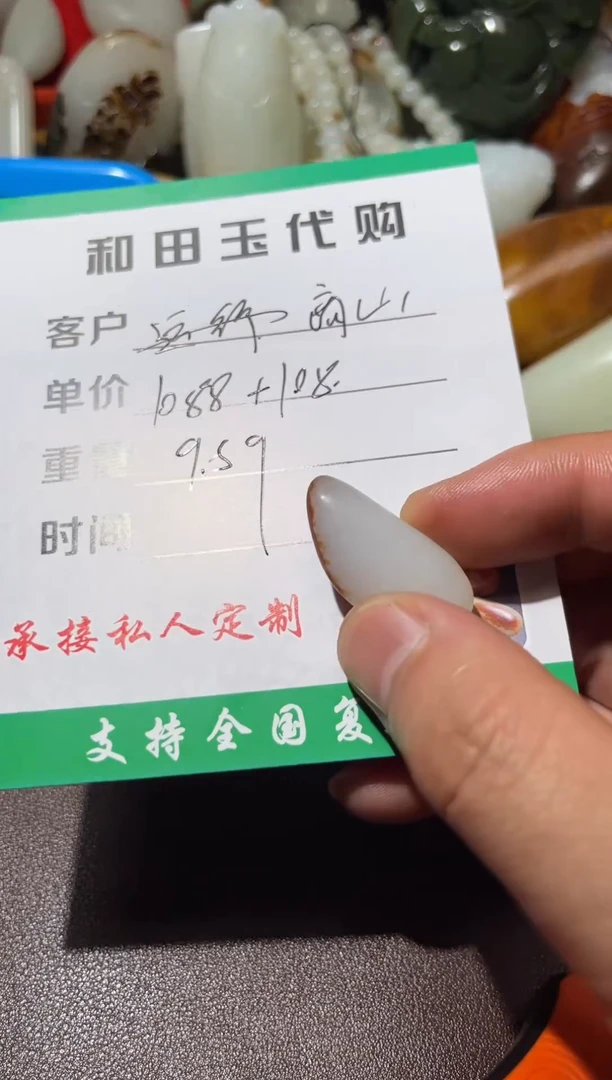 和田玉代购
客户
单价 1088+108.
重量 9.5g
时间
承接私人定制
支持全国复